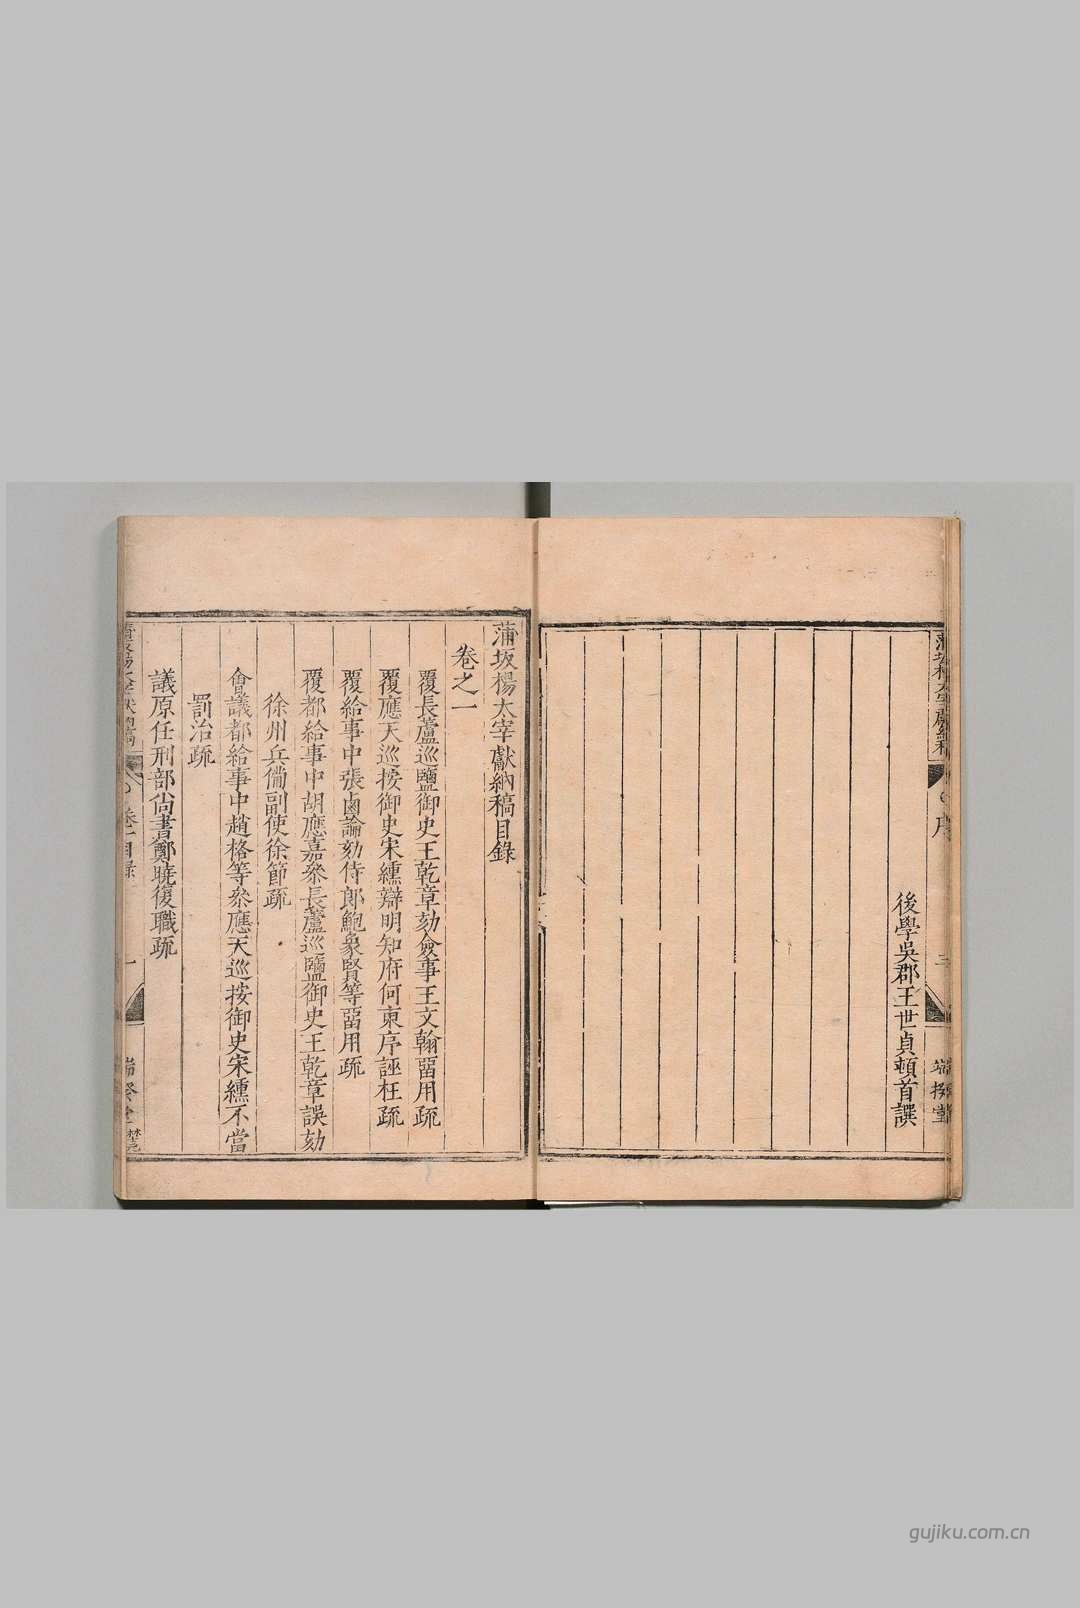 後學吳郡王世貞頓首譔
蒲坂楊太宰獻納稿目錄
卷之一
覆長蘆巡鹽御史王乾章劾僉事王文翰畱用疏
覆應天巡按御史宋纁辯明知府何東序誣枉疏
覆給事中張鹵論劾侍郎鮑象賢等畱用疏
覆都給事中胡應嘉叅長蘆巡鹽御史王乾章誤劾
徐州兵備副使徐節疏
會議都給事中趙格等叅應天巡按御史宋纁不當
罰治疏
議原任刑部尚書鄭曉復職疏
gujiku.com.cn